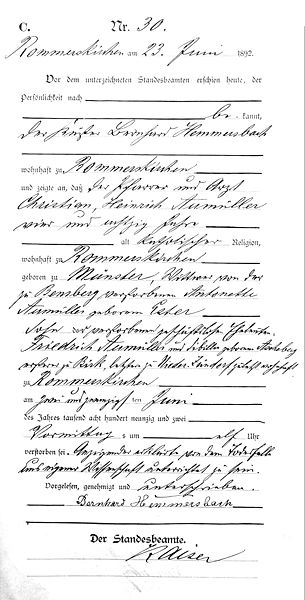 C.
Nr. 30.
Rommerskirchen am 23. Juni 1892.
Vor dem unterzeichneten Standesbeamten erschien heute, der
Persönlichkeit nach
be kannt,
der Küster Bernhard Hemmersbach
wohnhaft zu Rommerskirchen
und zeigte an, daß der Pfarrer und Arzt
Christian, Heinrich Aumüller
vier und achtzig Jahre
alt katholischer Religion,
wohnhaft zu Rommerskirchen
geboren zu Münster, Wittwer von der
zu Bensberg verstorbenen Antonette
Aumüller geborenen Esser
Sohn der verstorbenen Eheleute
Friedrich Aumüller und Sibilla geborene
zuletzt wohnhaft
zu Rommerskirchen
am zwei und zwanzigsten Juni
des Jahres tausend acht hundert neunzig und zwei
Vormittags um elf Uhr
verstorben sei. Anzeigender erklärte von dem Todesfalle
aus eigener Wissenschaft unterrichtet zu sein.
Vorgelesen, genehmigt und unterschrieben.
Bernhard Hemmersbach
Der Standesbeamte.
Kaiser